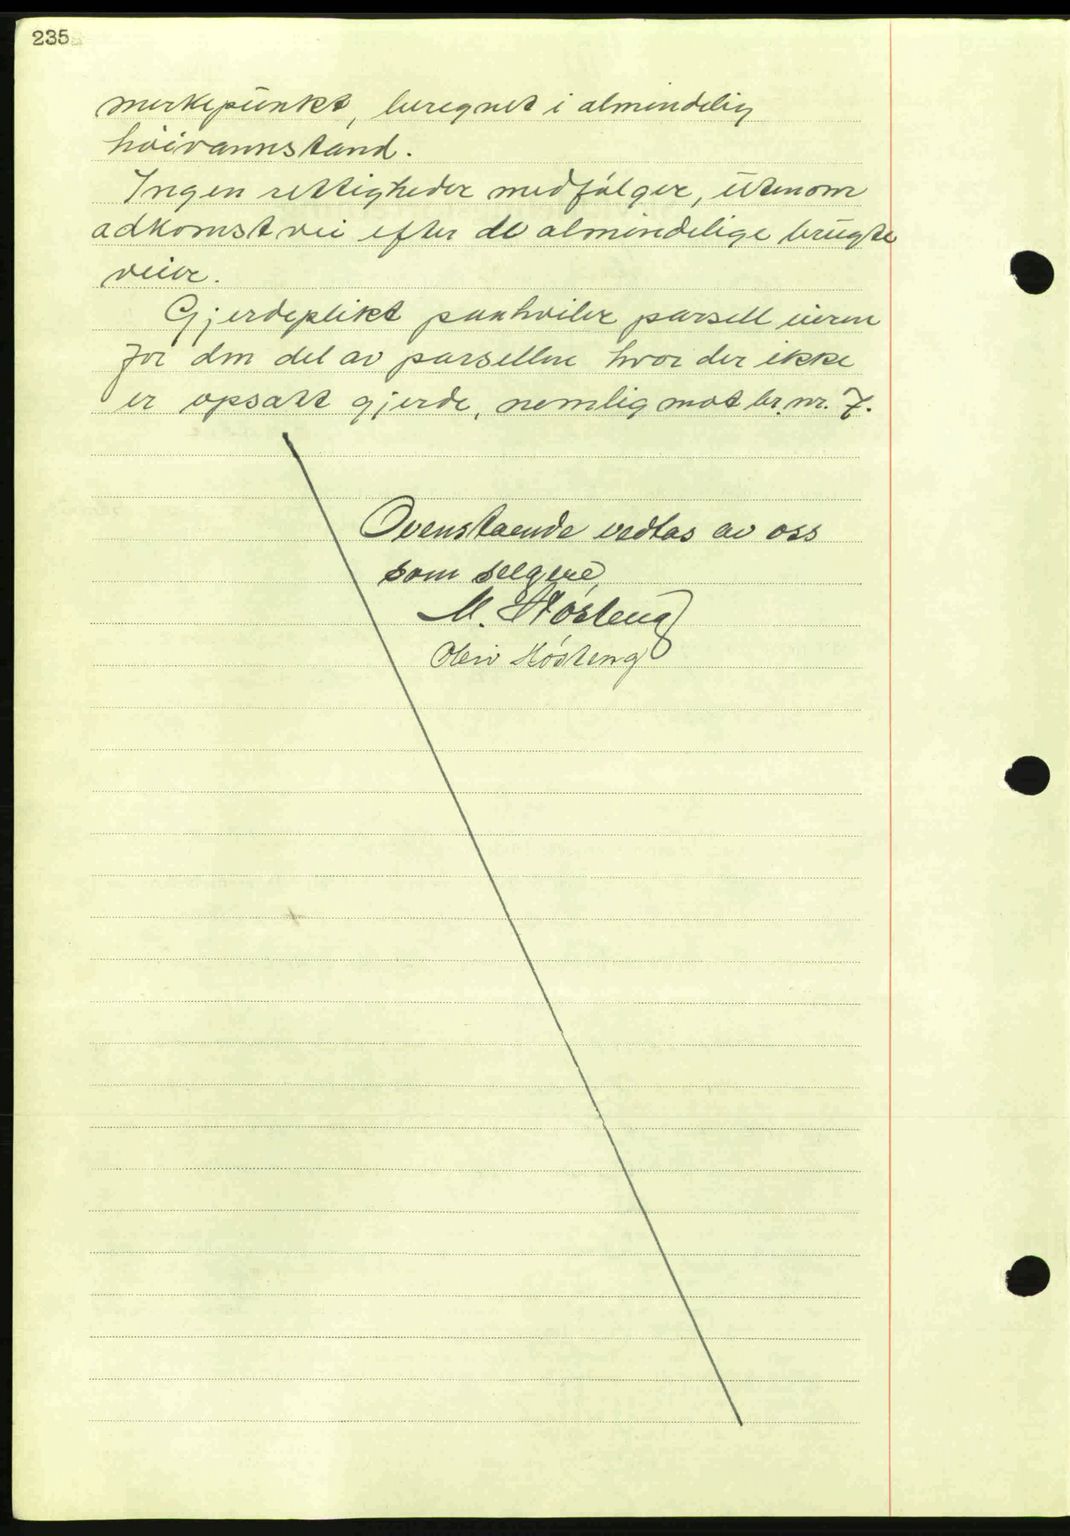 235
merkepunkt, beregnet i almindelig
høivannstand.
Ingen rettigheder medfølger, utenom
adkomst vei efter de almindelige brugte
veier.
Gjerdeplikt paahviler parsell eieren
for den del av parsellen hvor der ikke
er opsatt gjerde, nemlig mot br. nr. 7.
Ovenstaende vedtas av oss
som selgere,
M. Høsteng
Høsteng